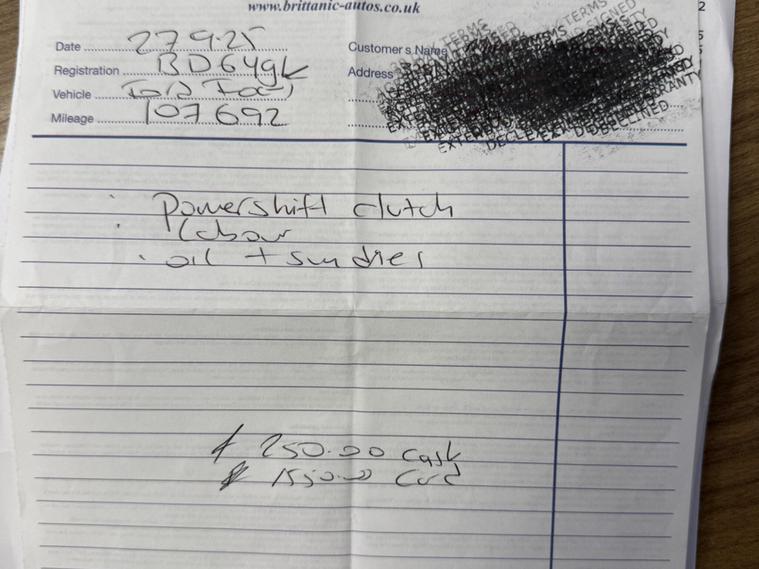 www.brittanic-autos.co.uk
2
Date 27 9.25
Registration BD64
Vehicle Ford Focus
Mileage 107692
Customer's Name
Address
TERMS
TERMS
DECLINED
· Powershift clutch
· Labour
· oil + sundries
£ 250.00 Cash
£ 1550.00 Card